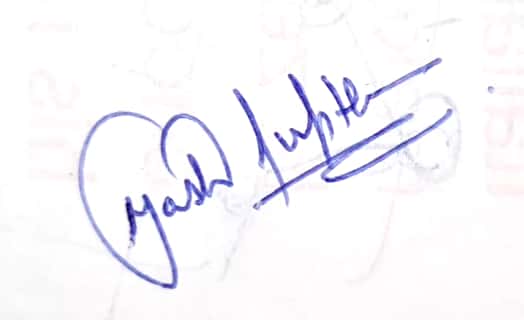 Yash Gupta